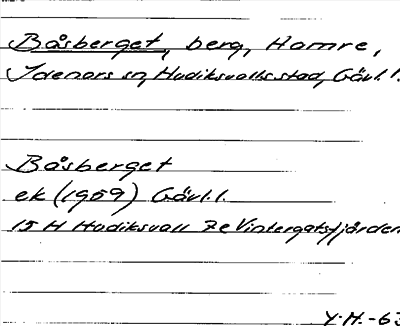 Båsberget, berg, Hamre,
Idenors sn, Hudiksvalls stad, Gävl.l.
Båsberget
ek (1959) Gävl.l.
15 H Hudiksvall 7e Vintergatsfjärden
Y.H.-63